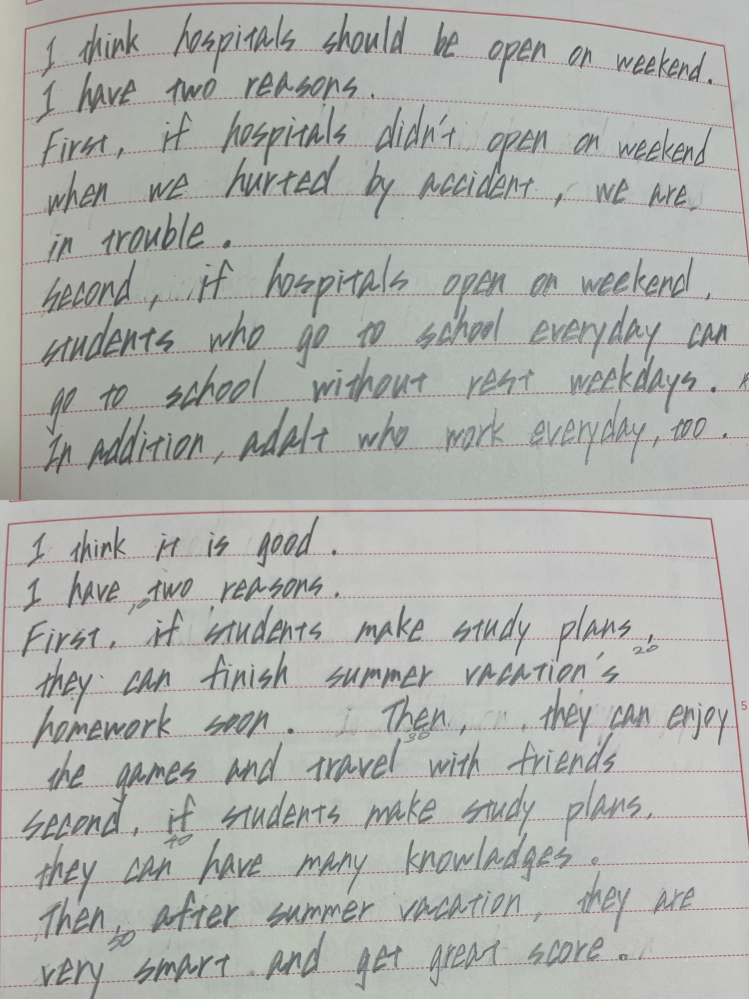 I think hospitals should be open on weekend.
I have two reasons.
First, if hospitals didn't open on weekend
when we hurted by accident, we are
in trouble.
Second, if hospitals open on weekend,
students who go to school everyday can
go to school without rest weekdays.
In addition, adalt who work everyday, too.
I think it is good.
I have two reasons.
10
First, if students make study plans,
20
they can finish summer vacation's
homework soon. Then, they can enjoy
5
30
the games and travel with friends
Second, if students make study plans,
40
they can have many knowladges.
Then, after summer vacation, they are
50
very smart and get great score.